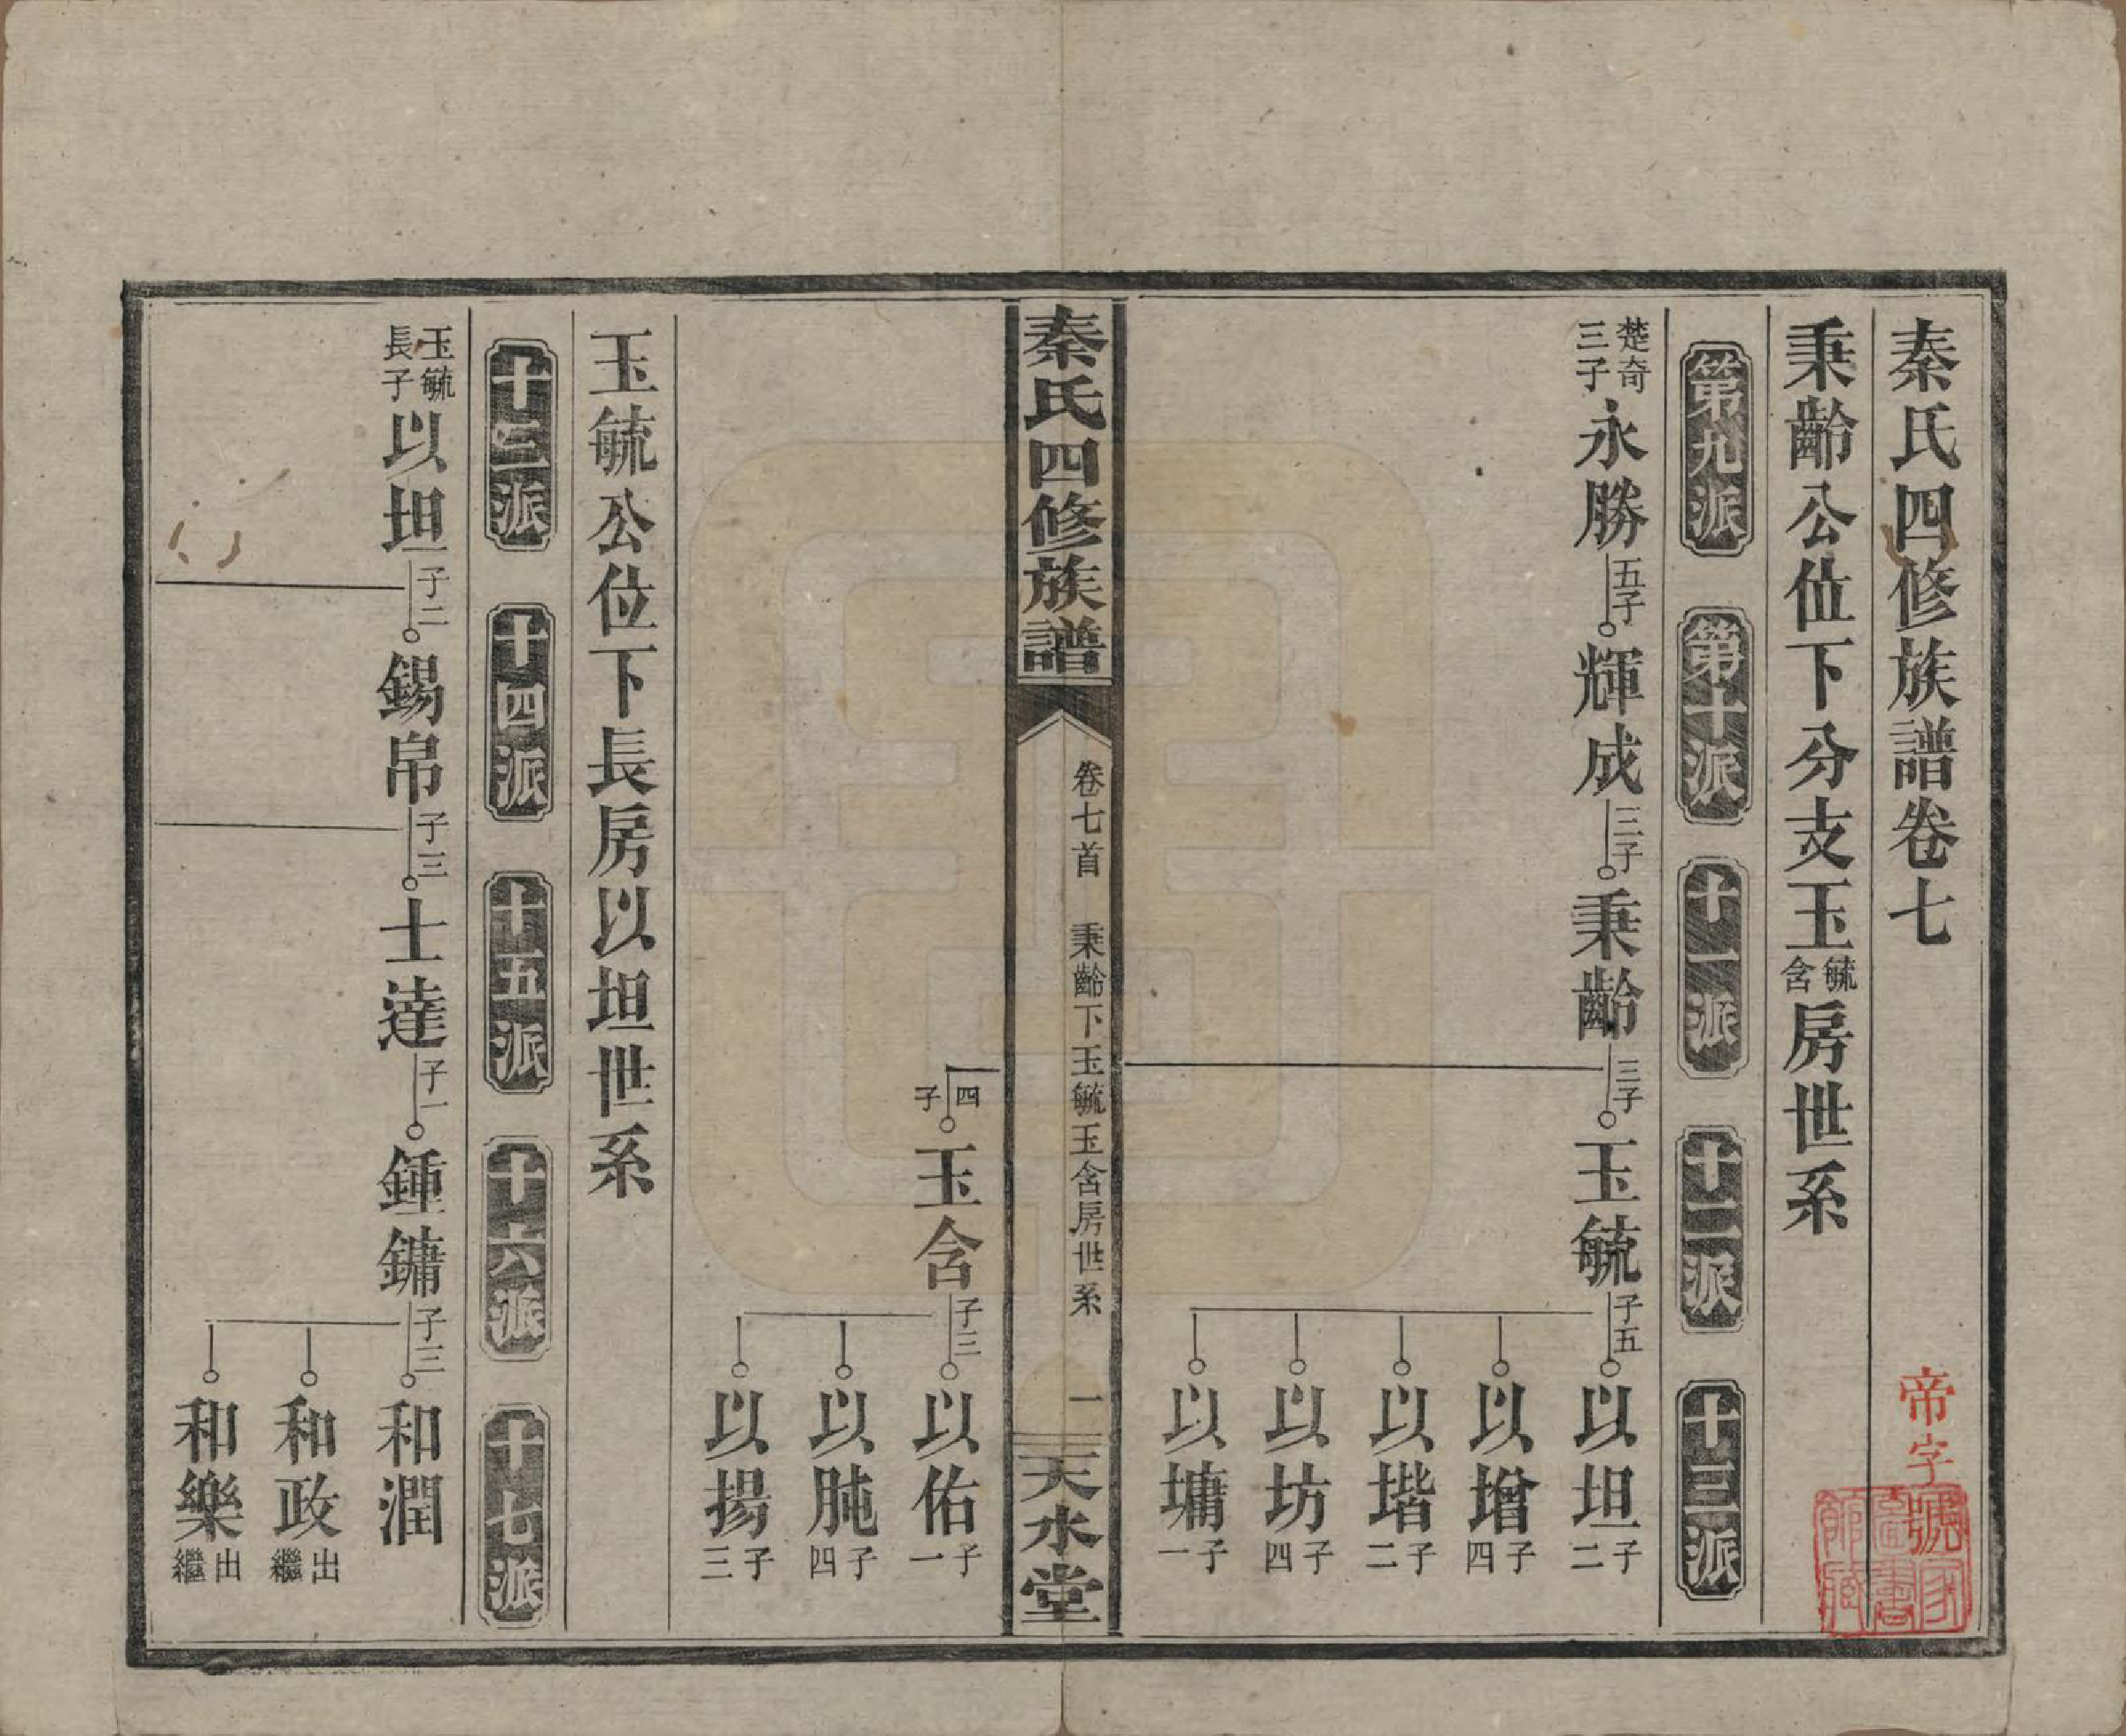 秦氏四修族譜卷七
帝字號
秉齡公位下分支玉毓含房世系
第九派
第十派
十一派
十二派
十三派
楚奇三子永勝五子輝成三子秉齡三子玉毓子五以坦子二
以增子四
以堦子二
以坊子四
以墉子一
秦氏四修族譜
卷七首 秉齡下玉毓玉含房世系 一
天水堂
四子玉含子三以佑子一
以肫子四
以揚子三
玉毓公位下長房以坦世系
十三派
十四派
十五派
十六派
十七派
玉毓長子以坦子二錫帛子三士達子一鍾鏞子三和潤
和政出繼
和樂出繼